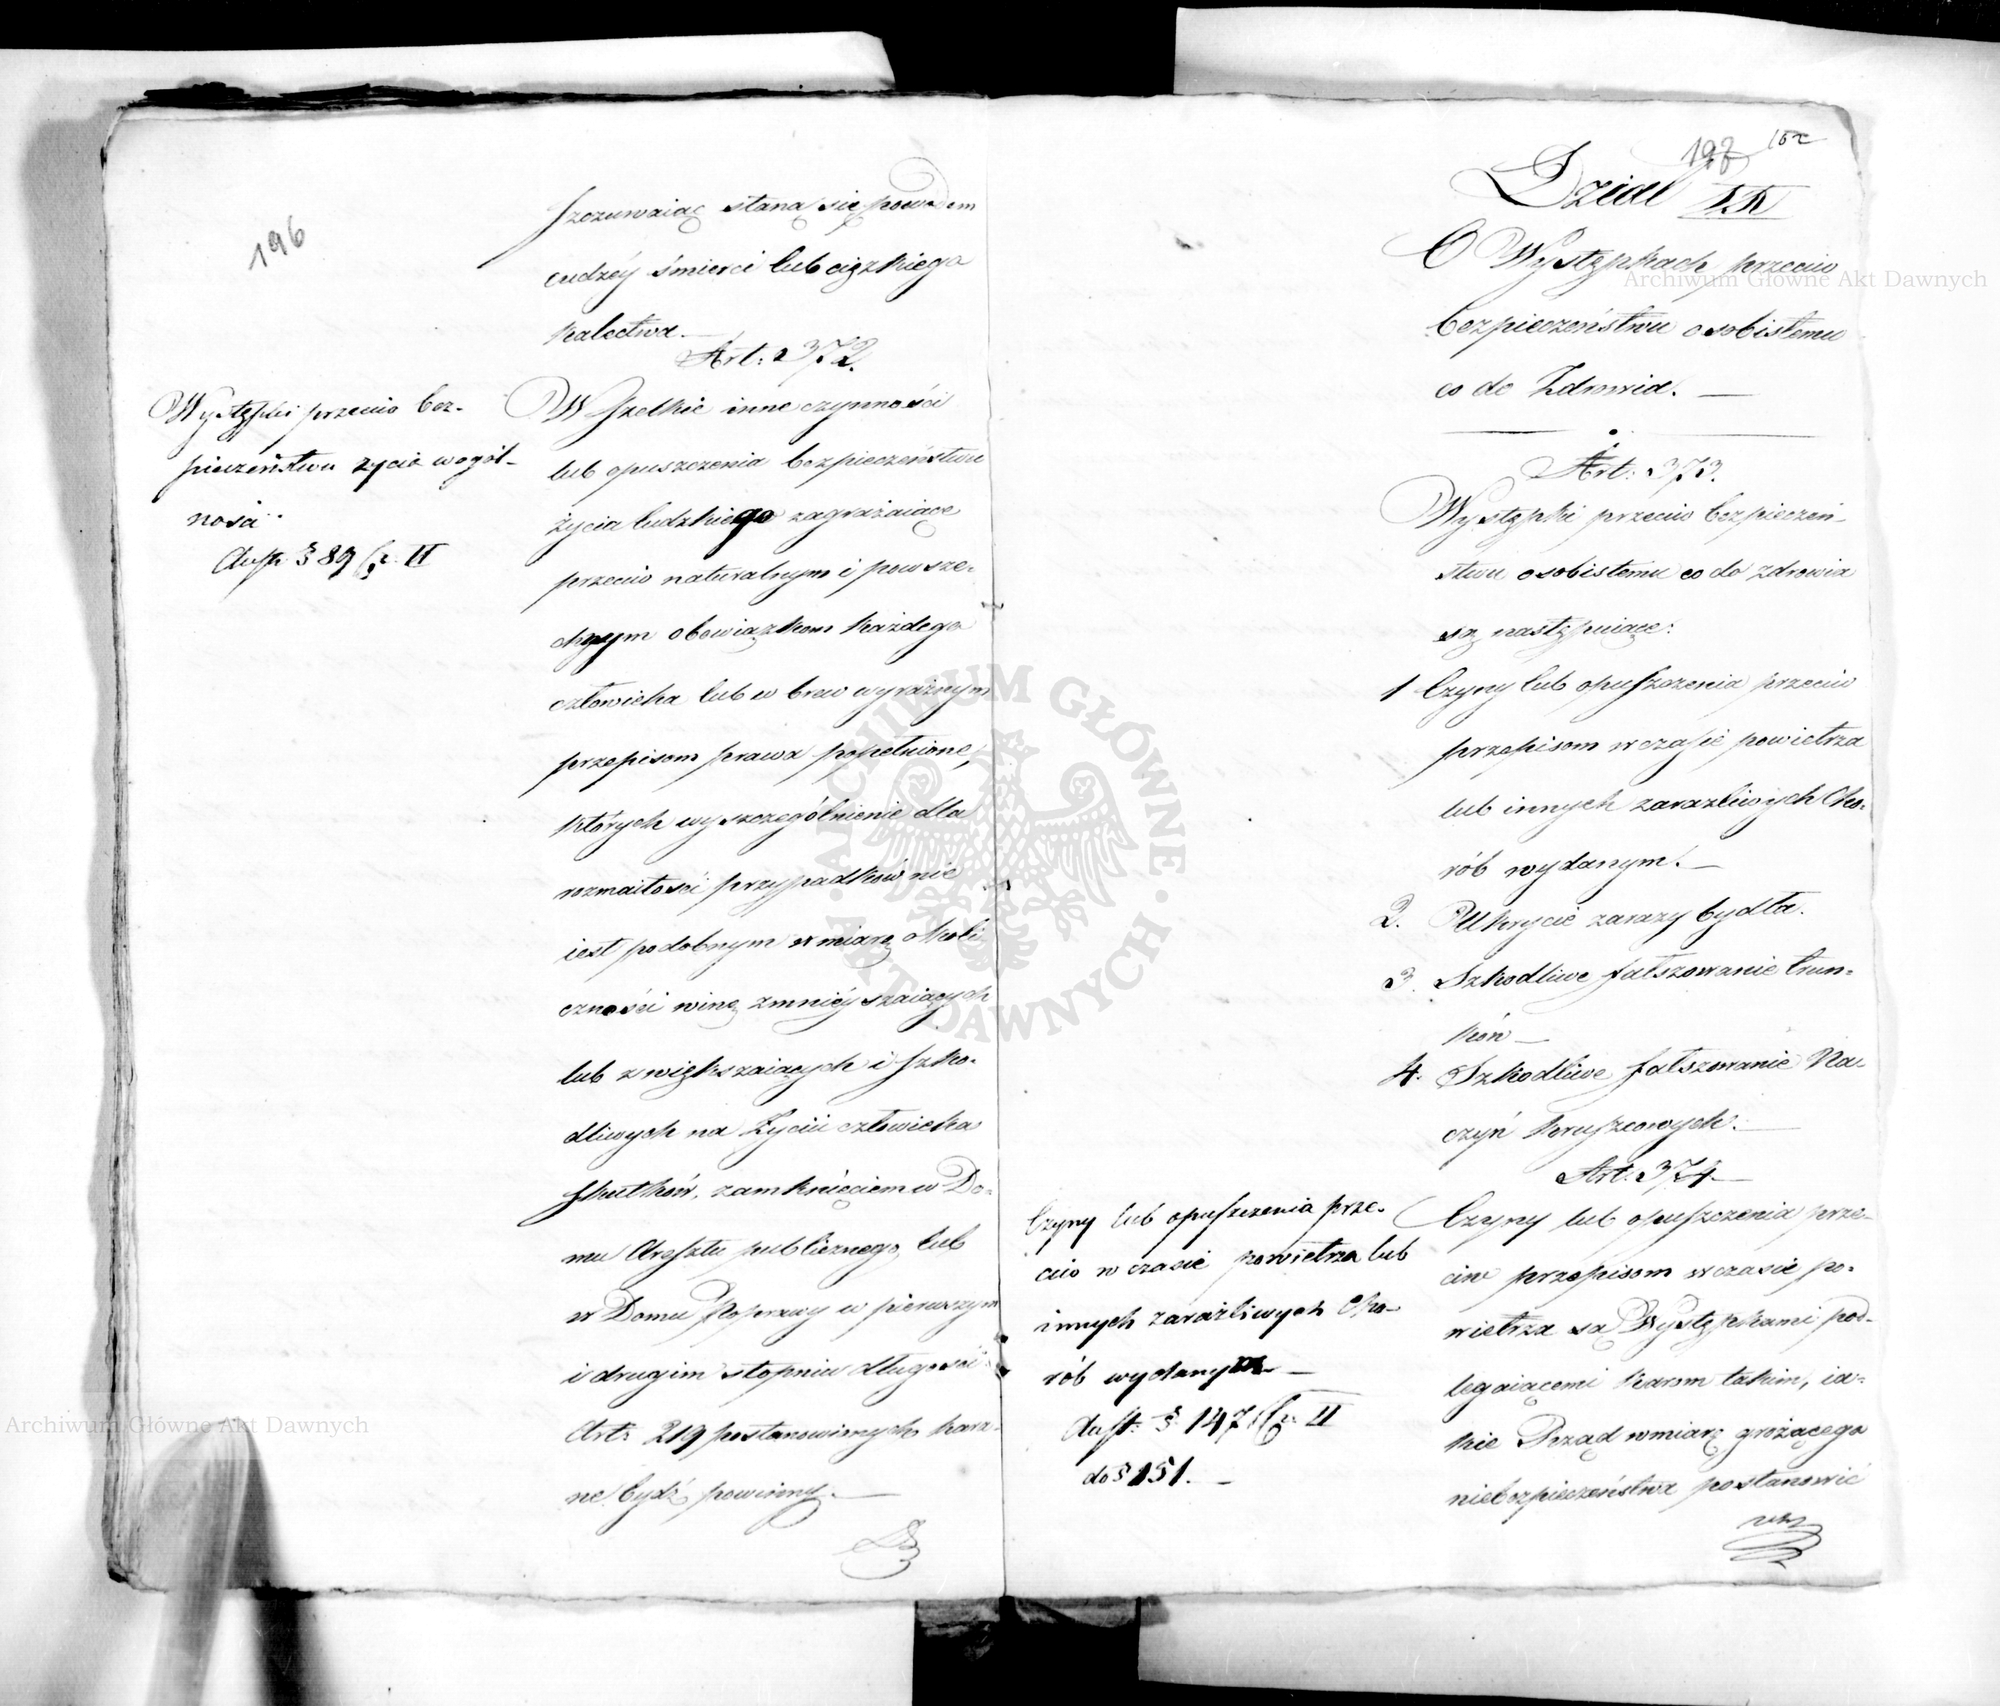 196
szczuwaiąc staną się powodem
cudzéy śmierci lub cięzkiego
kalectwa.—
Art: 372.
Występki przeciw bez-
pieczeństwu życia wogól-
nosci.
Aust. § 89 Cz. II
Wszelkie inne czynności
lub opuszczenia bezpieczeństwu
życia ludzkiego zagrażaiące
przeciw naturalnym i powsze-
chnym obowiązkom każdego
człowieka lub w brew wyraźnym
przepisom prawa popełnione,
których wyszczególnienie dla
rozmaitości przypadków nie
iest podobnym w miarę okoli
czności winę zmniéyszaiących
lub zwiększaiących i szko-
dliwych na Życiu człowieka
skutków, zamknięciem w Do-
mu Aresztu publicznego, lub
w Domu Poprawy w pierwszym
i drugim stopniu długości
Art: 219 postanowionych kara-
ne bydź powinny.—
197 152
Dział
O Występkach przeciw
bezpieczeństwu osobistemu
co do Zdrowia.—
Art: 373.
Występki przeciw bezpieczeń-
stwu osobistemu co do zdrowia
są następuiące:
1 Czyny lub opuszczenia przeciw
przepisom w czasie powietrza
lub innych zaraźliwych Cho-
rób wydanym.—
2. Ukrycie zarazy bydła.
3. Szkodliwe fałszowanie trun-
ków—
4. Szkodliwe fałszowanie Na-
czyń kruszcowych.—
Art: 374.—
Czyny lub opuszczenia prze-
ciw w czasie powietrza lub
innych zaraźliwych Cho-
rób wydanym—
Aust: § 147 Cz: II
do § 151.—
Czyny lub opuszczenia prze-
ciw przepisom w czasie po-
wietrza są Występkami pod-
legaiącemi karom takim, ia-
kie Rząd w miarę grożącego
niebezpieczeństwa postanowić
Archiwum Główne Akt Dawnych
Archiwum Główne Akt Dawnych
ARCHIWUM GŁÓWNE · AKT DAWNYCH ·